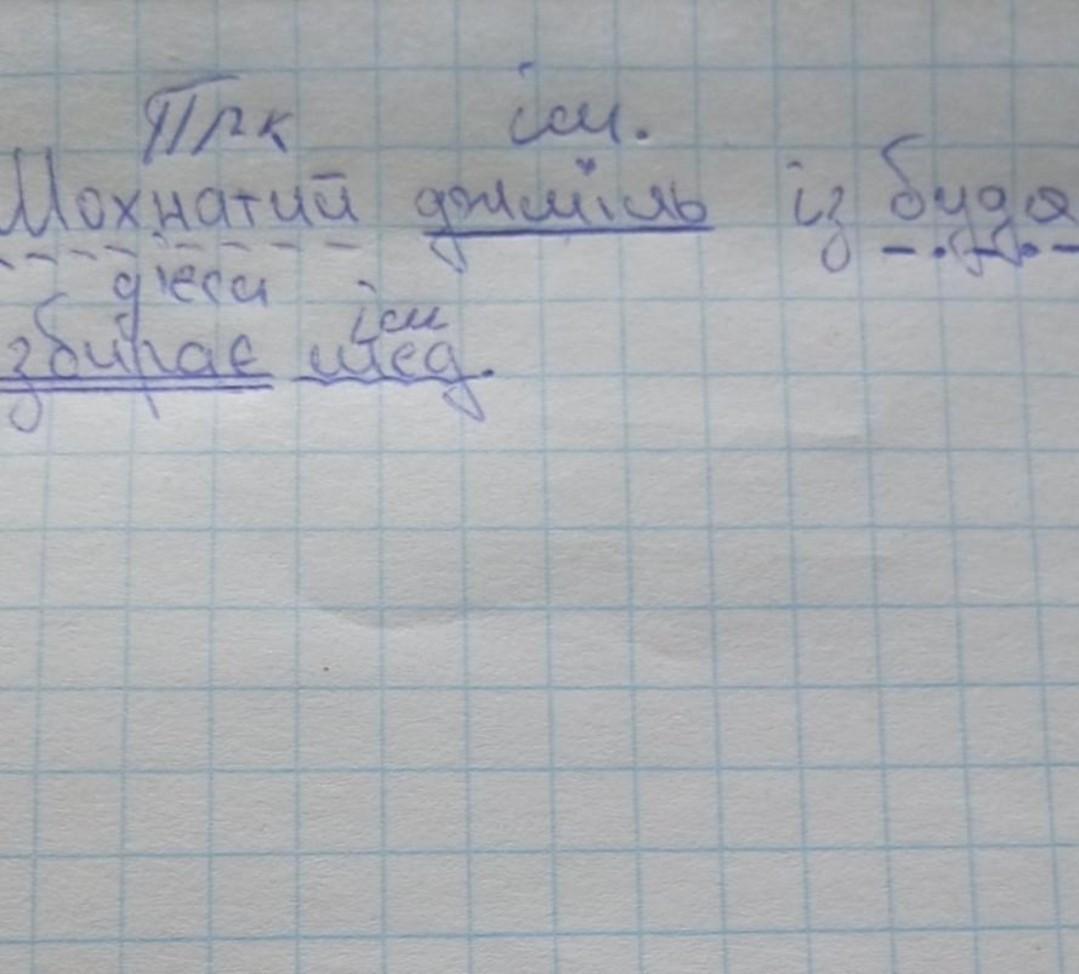 Прк ім.
Мохнатий джміль із буд
дієсл ім
збирає мед.